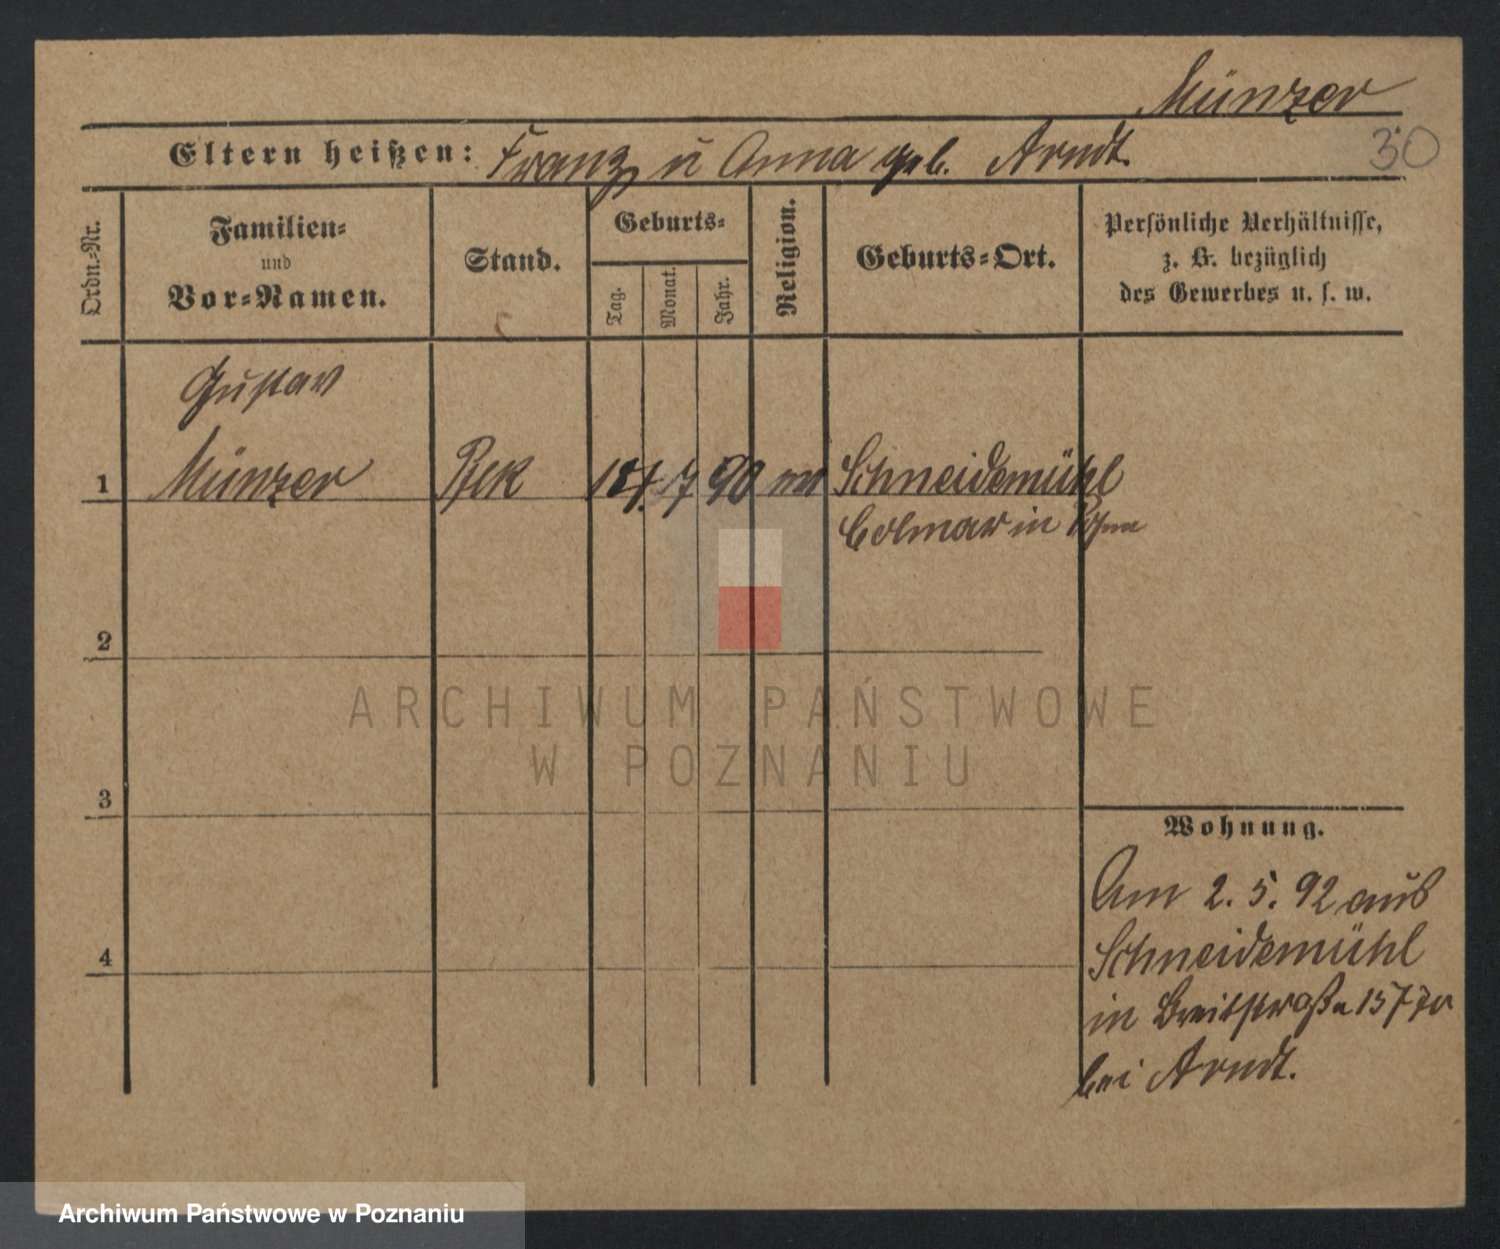 Münzer
30
Eltern heißen: Franz u Anna geb. Arndt.
Ordn.-Nr.
Familien-
und
Vor-Namen.
Stand.
Geburts-
Tag.
Monat.
Jahr.
Religion.
Geburts-Ort.
Persönliche Verhältnisse,
z. B. bezüglich
des Gewerbes u. s. w.
Gustav
1 Münzer 7 90 Schneidemühl
Colmar in Posen
2
ARCHIWUM PAŃSTWOWE
W POZNANIU
3
Wohnung.
Am 2. 5. 92 aus
Schneidemühl
4
in Breitstraße 15
bei Arndt.
Archiwum Państwowe w Poznaniu